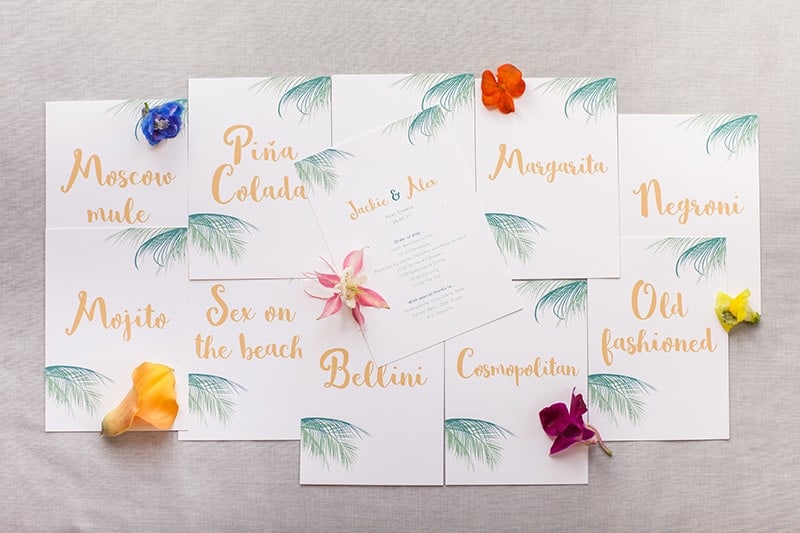 Moscow
mule
Piňa
Colada
Jackie & Alex
Order of play
With special thanks to
Margarita
Negroni
Mojito
Sex on
the beach
Bellini
Cosmopolitan
Old
fashioned